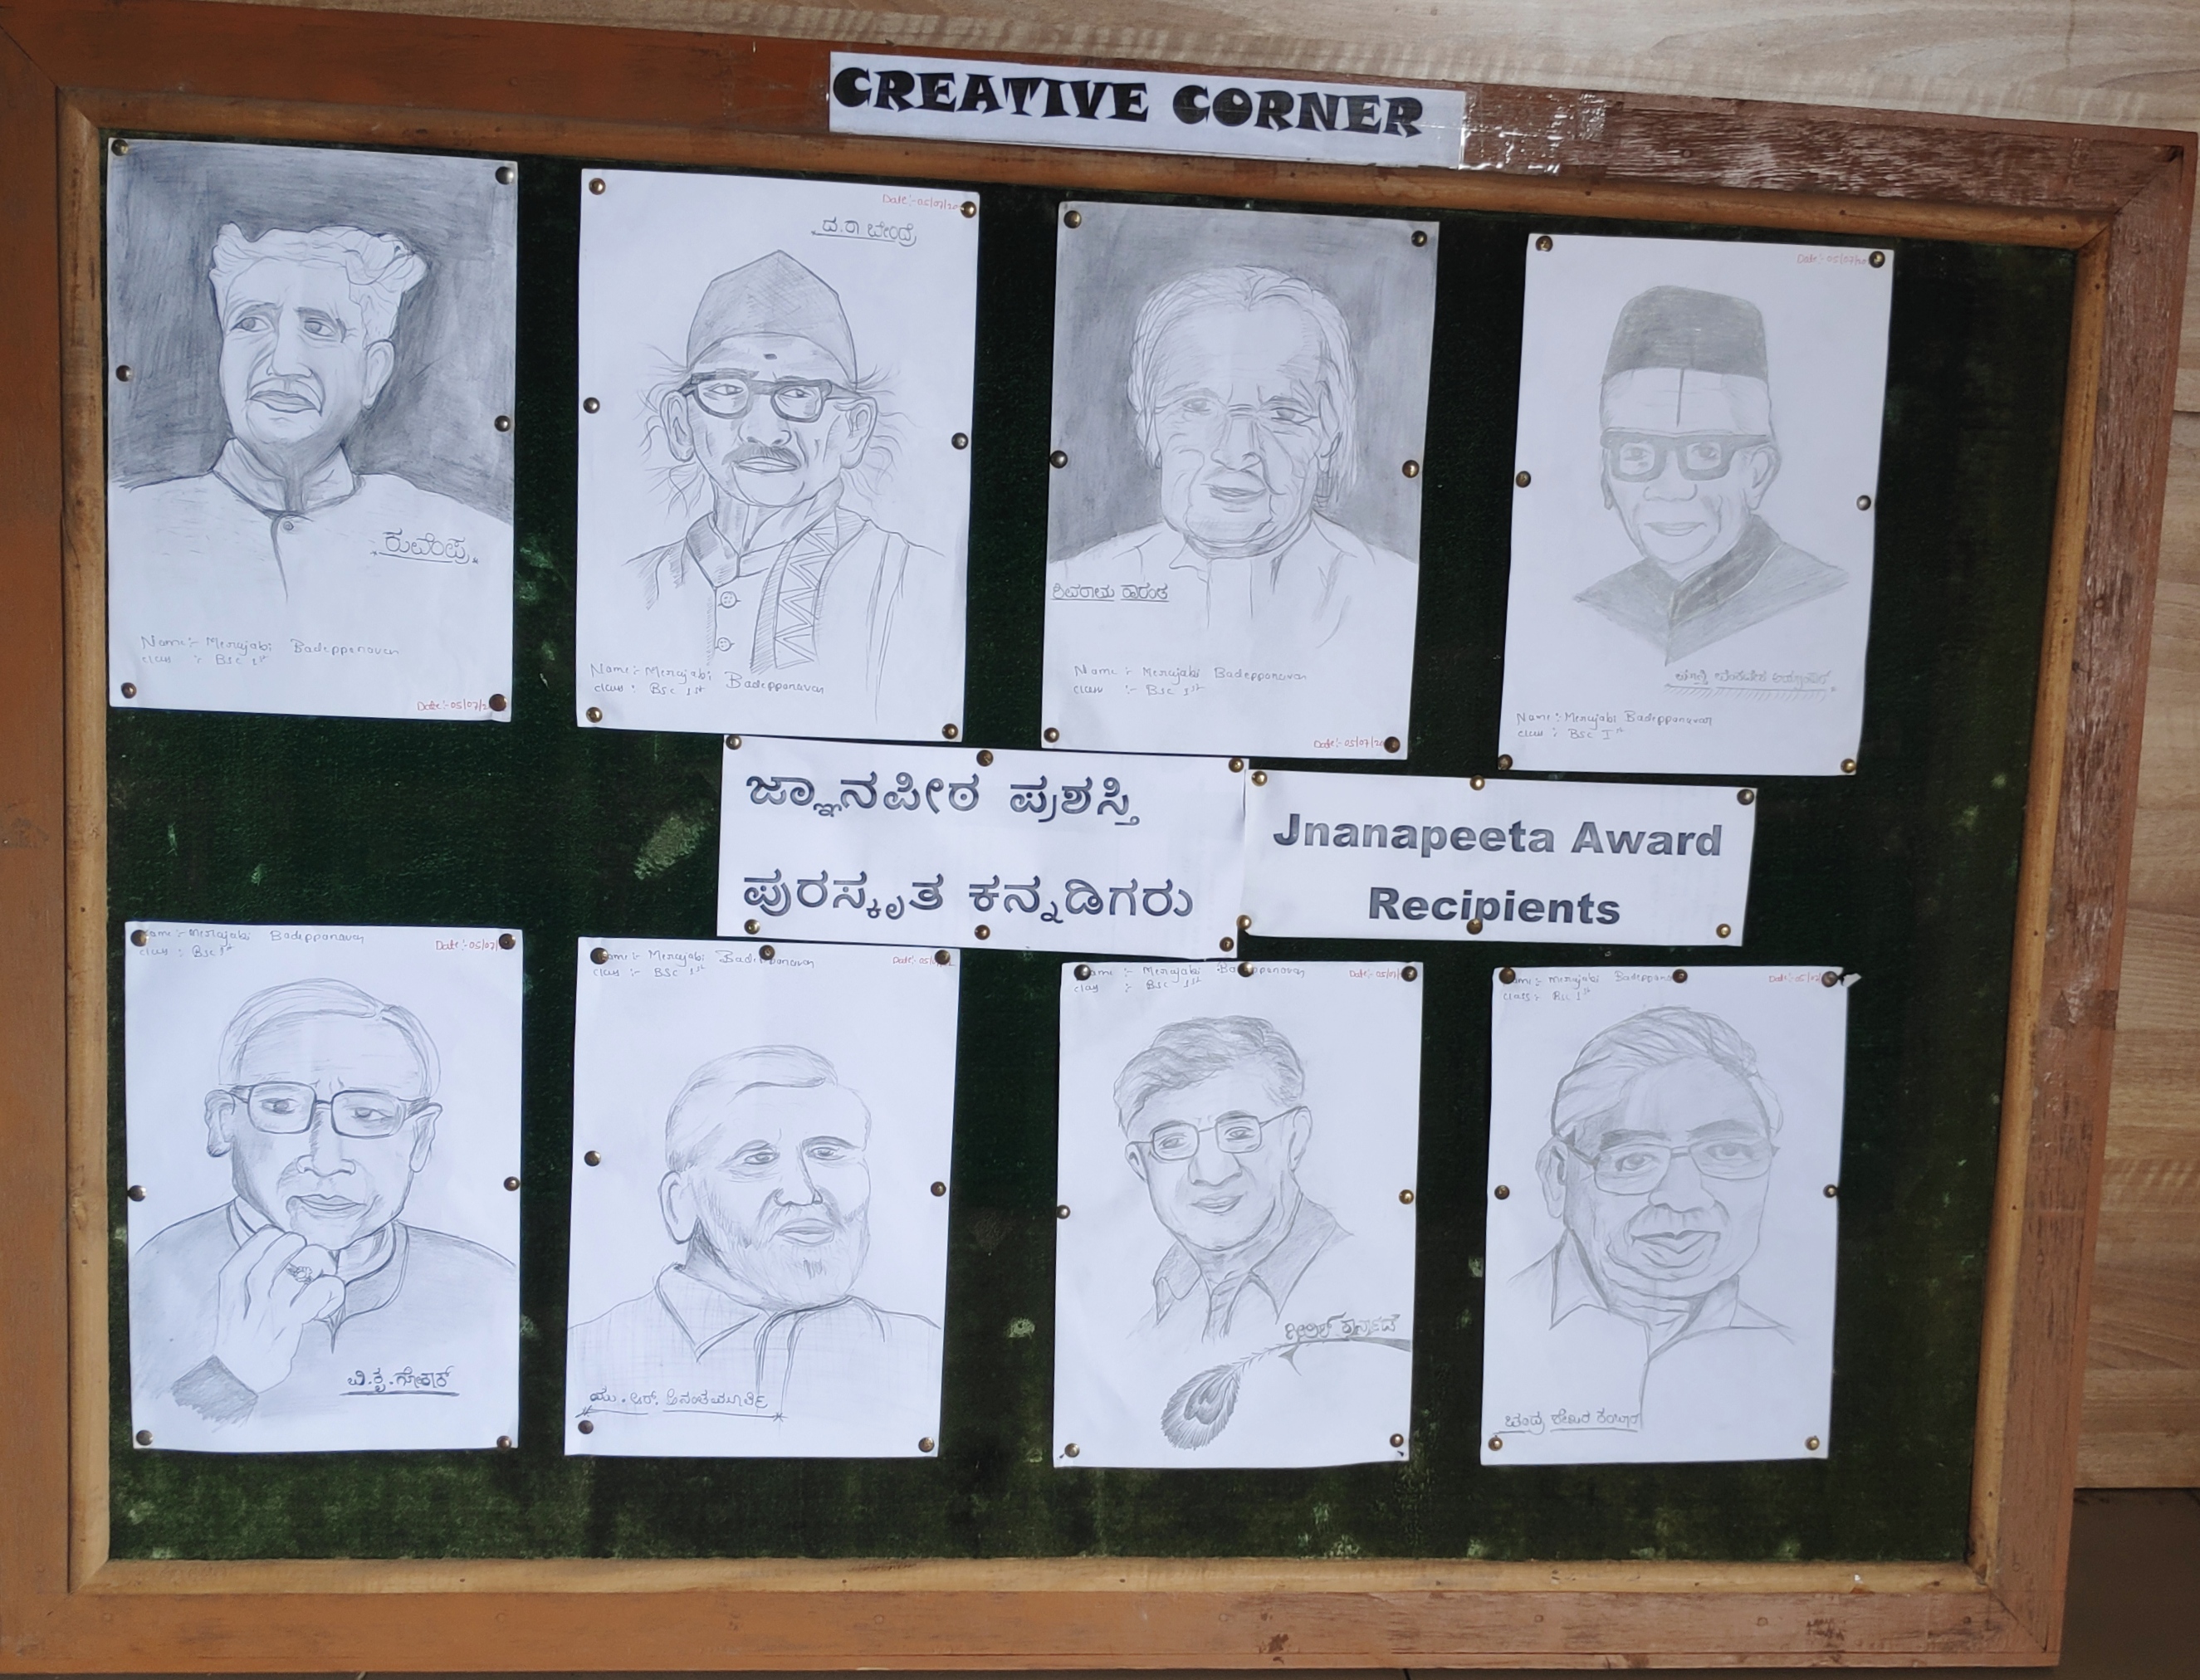 CREATIVE CORNER
ಕುವೆಂಪು
Name:- Merajabi Badeppanavar
class :- Bsc 1st
Date:-05/07/2
Date:-05/07/20
ದ.ರಾ ಬೇಂದ್ರೆ
Name:- Merajabi Badeppanavar
class :- Bsc 1st
ಶಿವರಾಮ ಕಾರಂತ
Name :- Merajabi Badeppanavar
class :- Bsc 1st
Date:-05/07/20
Date:-05/07/20
Name:- Merajabi Badeppanavar
class :- Bsc Ist
ಜ್ಞಾನಪೀಠ ಪ್ರಶಸ್ತಿ
ಪುರಸ್ಕೃತ ಕನ್ನಡಿಗರು
Jnanapeeta Award
Recipients
Name:- Merajabi Badeppanavar
class :- Bsc 1st
Date:-05/07/
ವಿ.ಕೃ.ಗೋಕಾಕ್
Name:- Merajabi Badeppanavar
class :- Bsc 1st
Date:-05/
ಯು.ಆರ್. ಅನಂತಮೂರ್ತಿ
Name :- Merajabi Badeppanavar
class :- Bsc 1st
Date:-05/07/
ಗಿರೀಶ್ ಕಾರ್ನಾಡ
Name:- Merajabi Badeppana
class:- Bsc 1st
Date:-05/07/
ಚಂದ್ರ ಶೇಖರ ಕಂಬಾರ